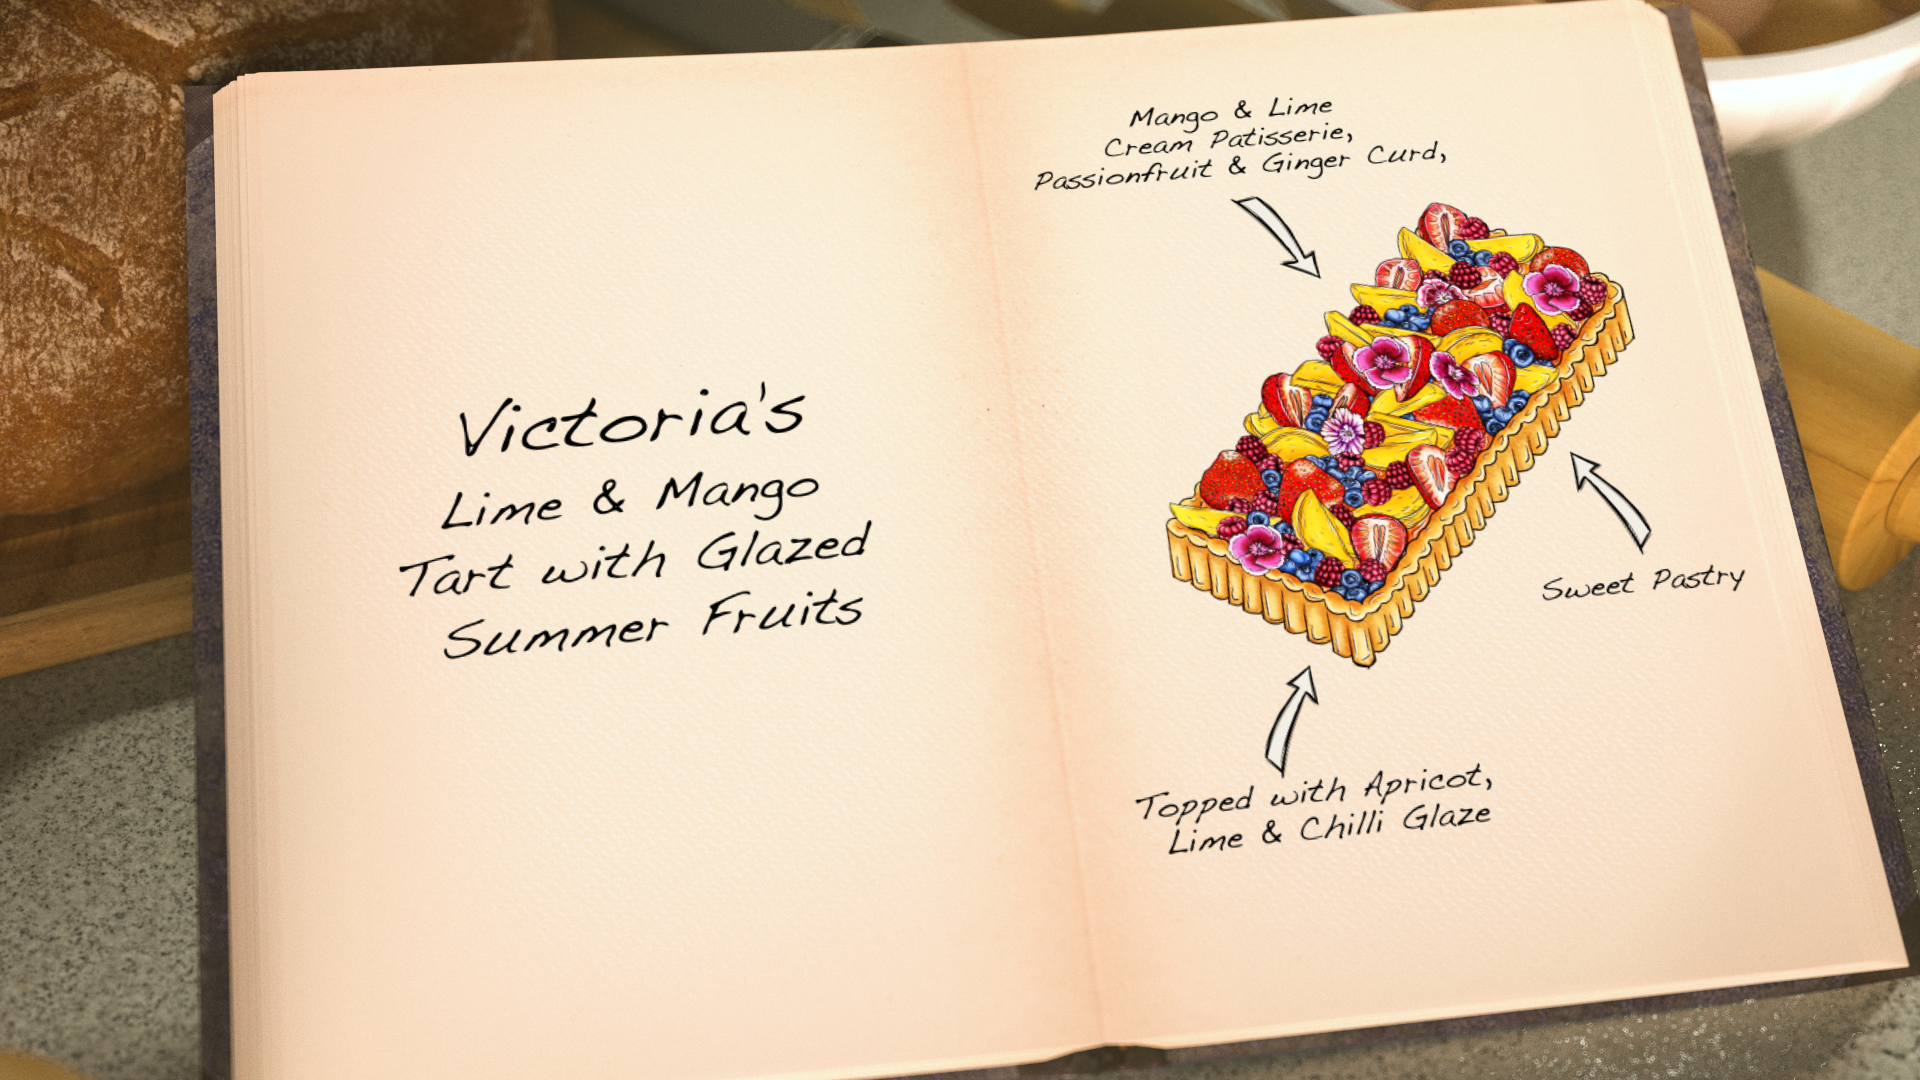 Victoria's
Lime & Mango
Tart with Glazed
Summer Fruits
Mango & Lime
Cream Patisserie,
Passionfruit & Ginger Curd,
Sweet Pastry
Topped with Apricot,
Lime & Chilli Glaze